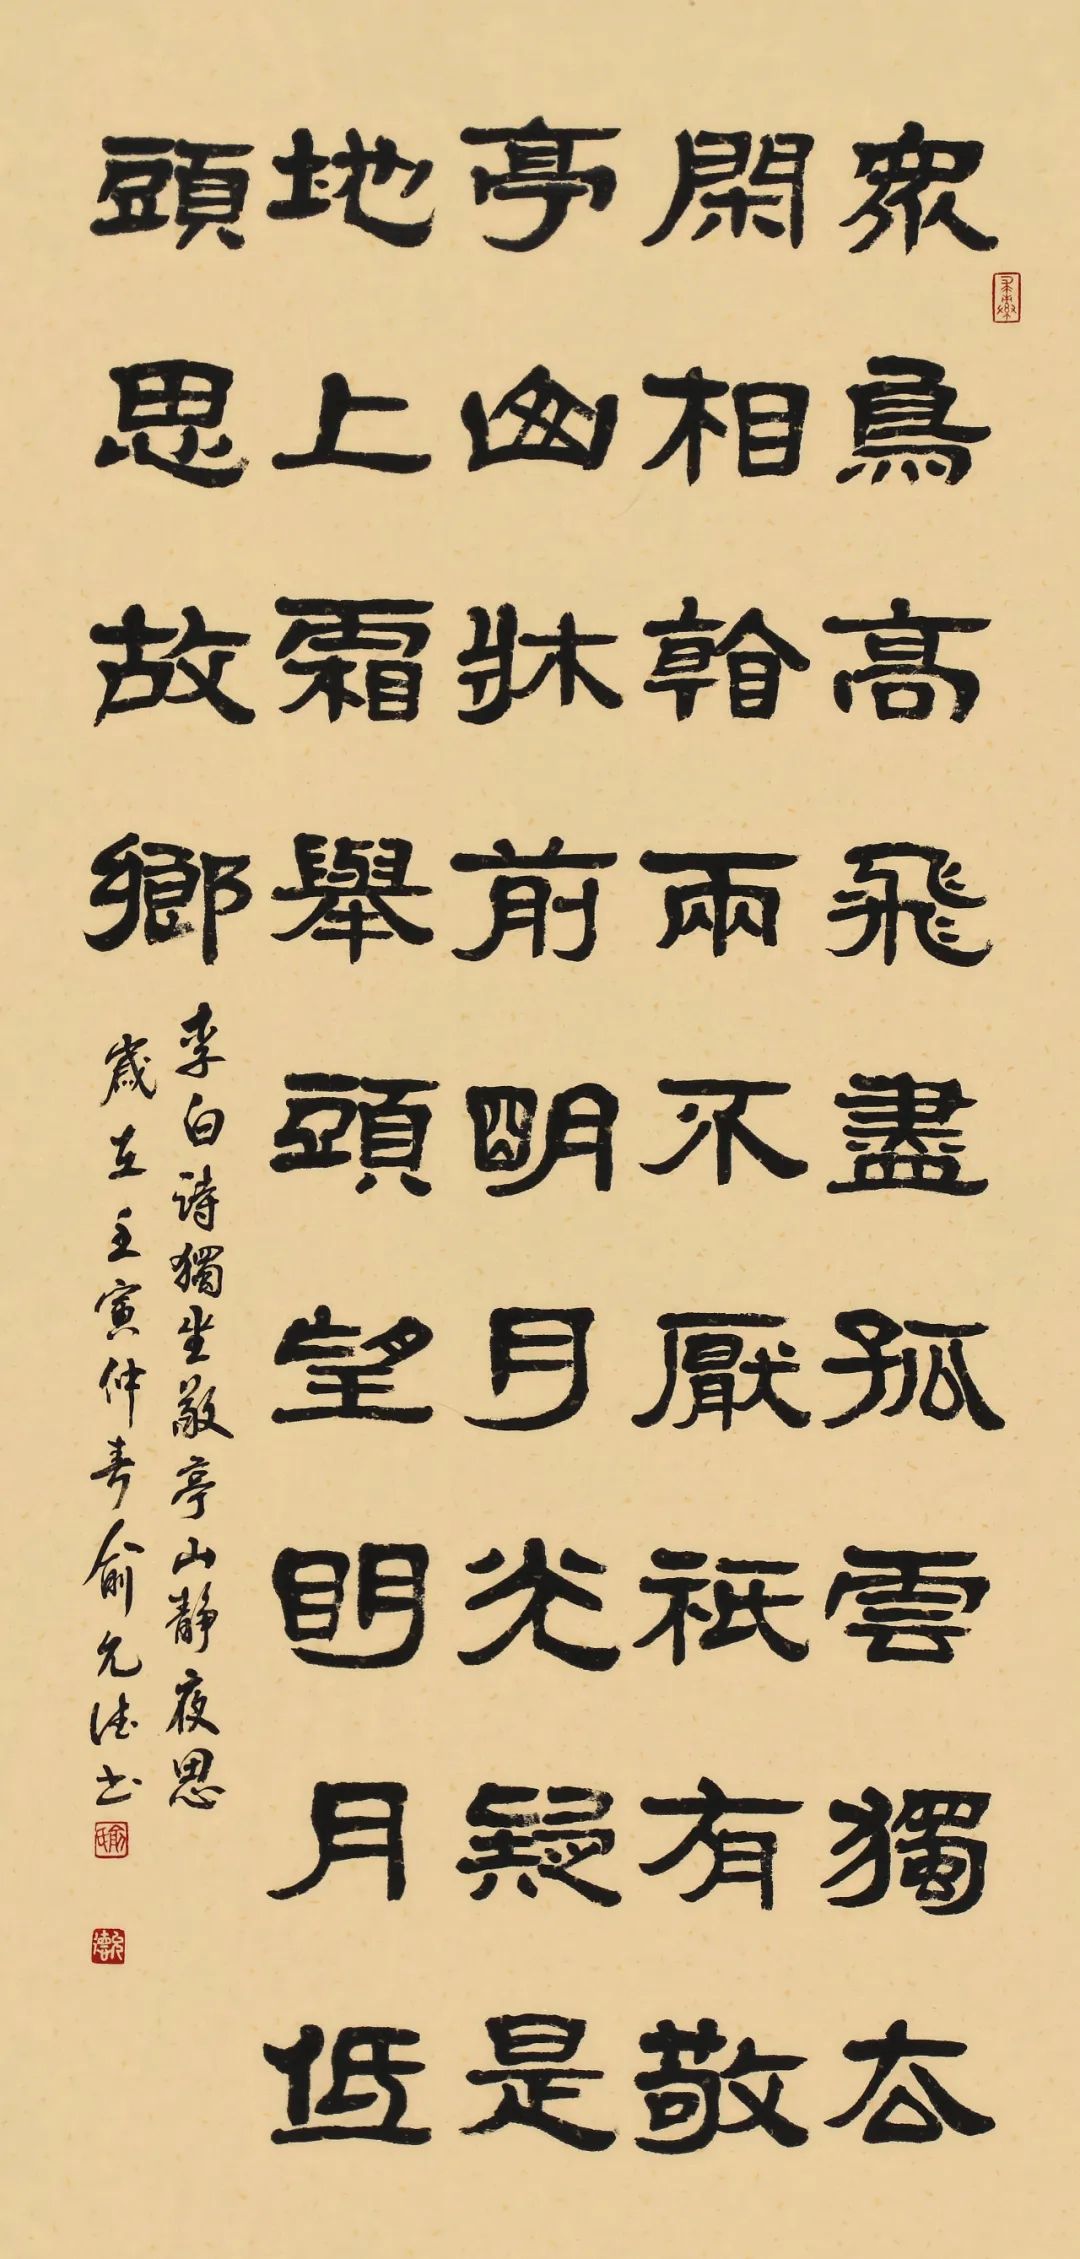 衆鳥高飛盡孤雲獨去
閑相看兩不厭祇有敬
亭山牀前朙月光疑是
地上霜舉頭望眀月低
頭思故鄉
李白詩獨坐敬亭山靜夜思
歲在壬寅仲春俞允德书